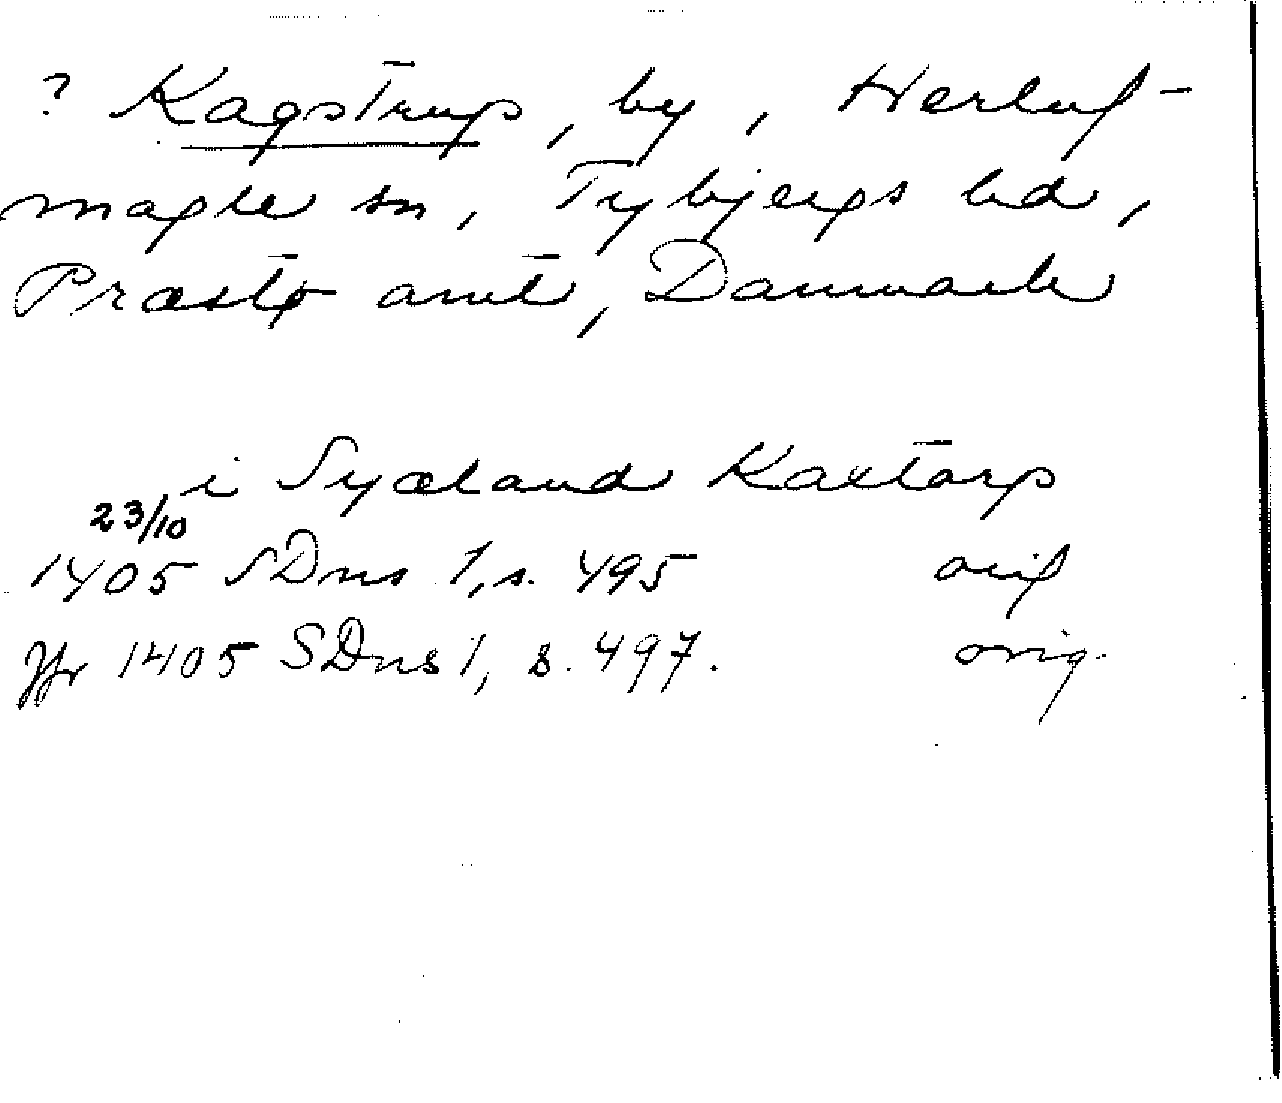 ? Kagstrup, by, Herluf-
magle sn, Tybjergs hd,
Præstø amt, Danmark
i Syæland Kaxtorp
23/10
1405 SDns 1, s. 495 orig
Jfr 1405 SDns 1, s. 497. orig.